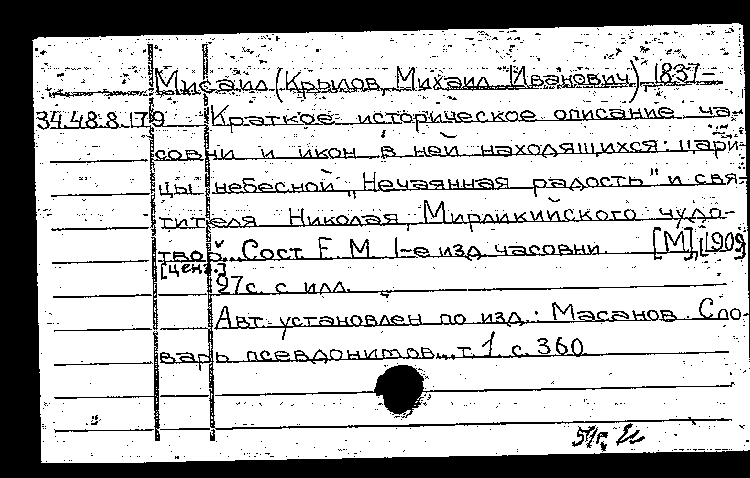 Мисаил (Крылов, Михаил Иванович), 1837-
34.48.8.179 Краткое историческое описание ча-
совни и икон в ней находящихся: цари-
цы небесной „Нечаянная радость" и свя-
тителя Николая, Мирликийского чудо-
твор... Сост. Е. М. 1-е изд. часовни. [М], 1909
[ценз.]
97с. с илл.
Авт. установлен по изд.: Масанов. Сло-
варь псевдонимов... т. 1. с. 360